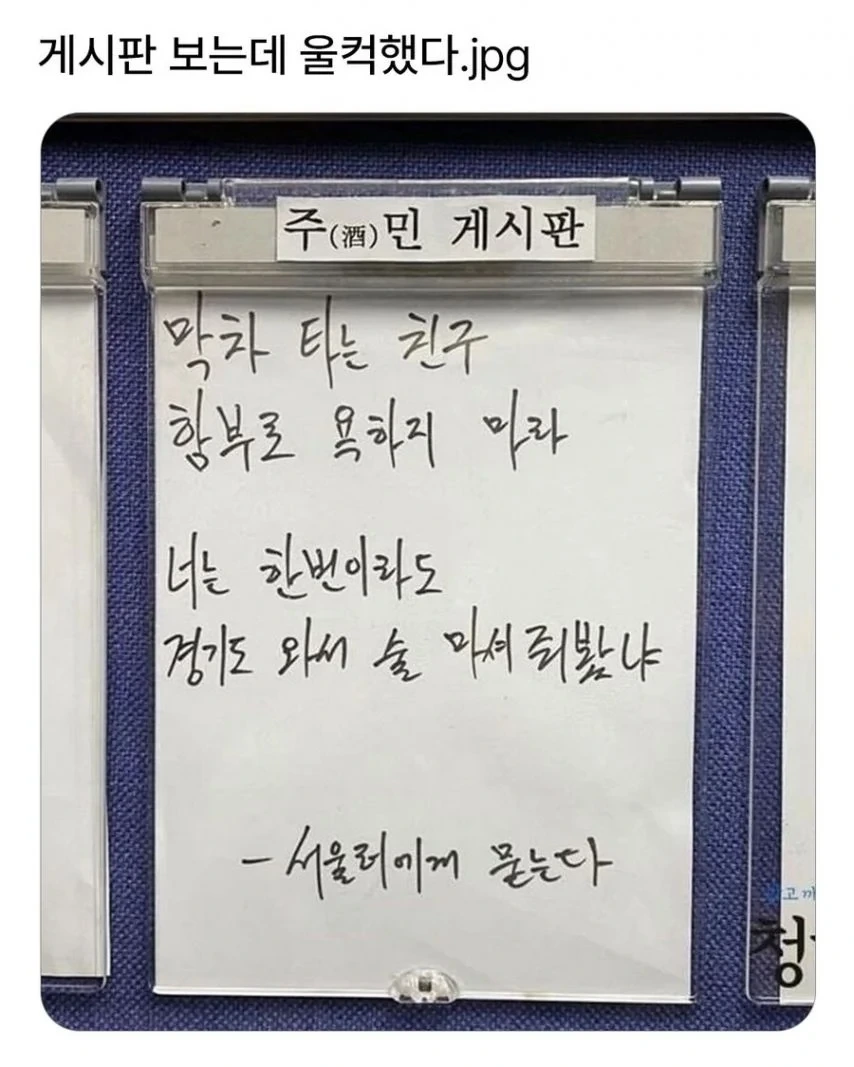 게시판 보는데 울컥했다.jpg
주(酒)민 게시판
막차 타는 친구
함부로 욕하지 마라
너는 한번이라도
경기도 와서 술 마셔줘봤냐
- 서울러에게 묻는다
고
청